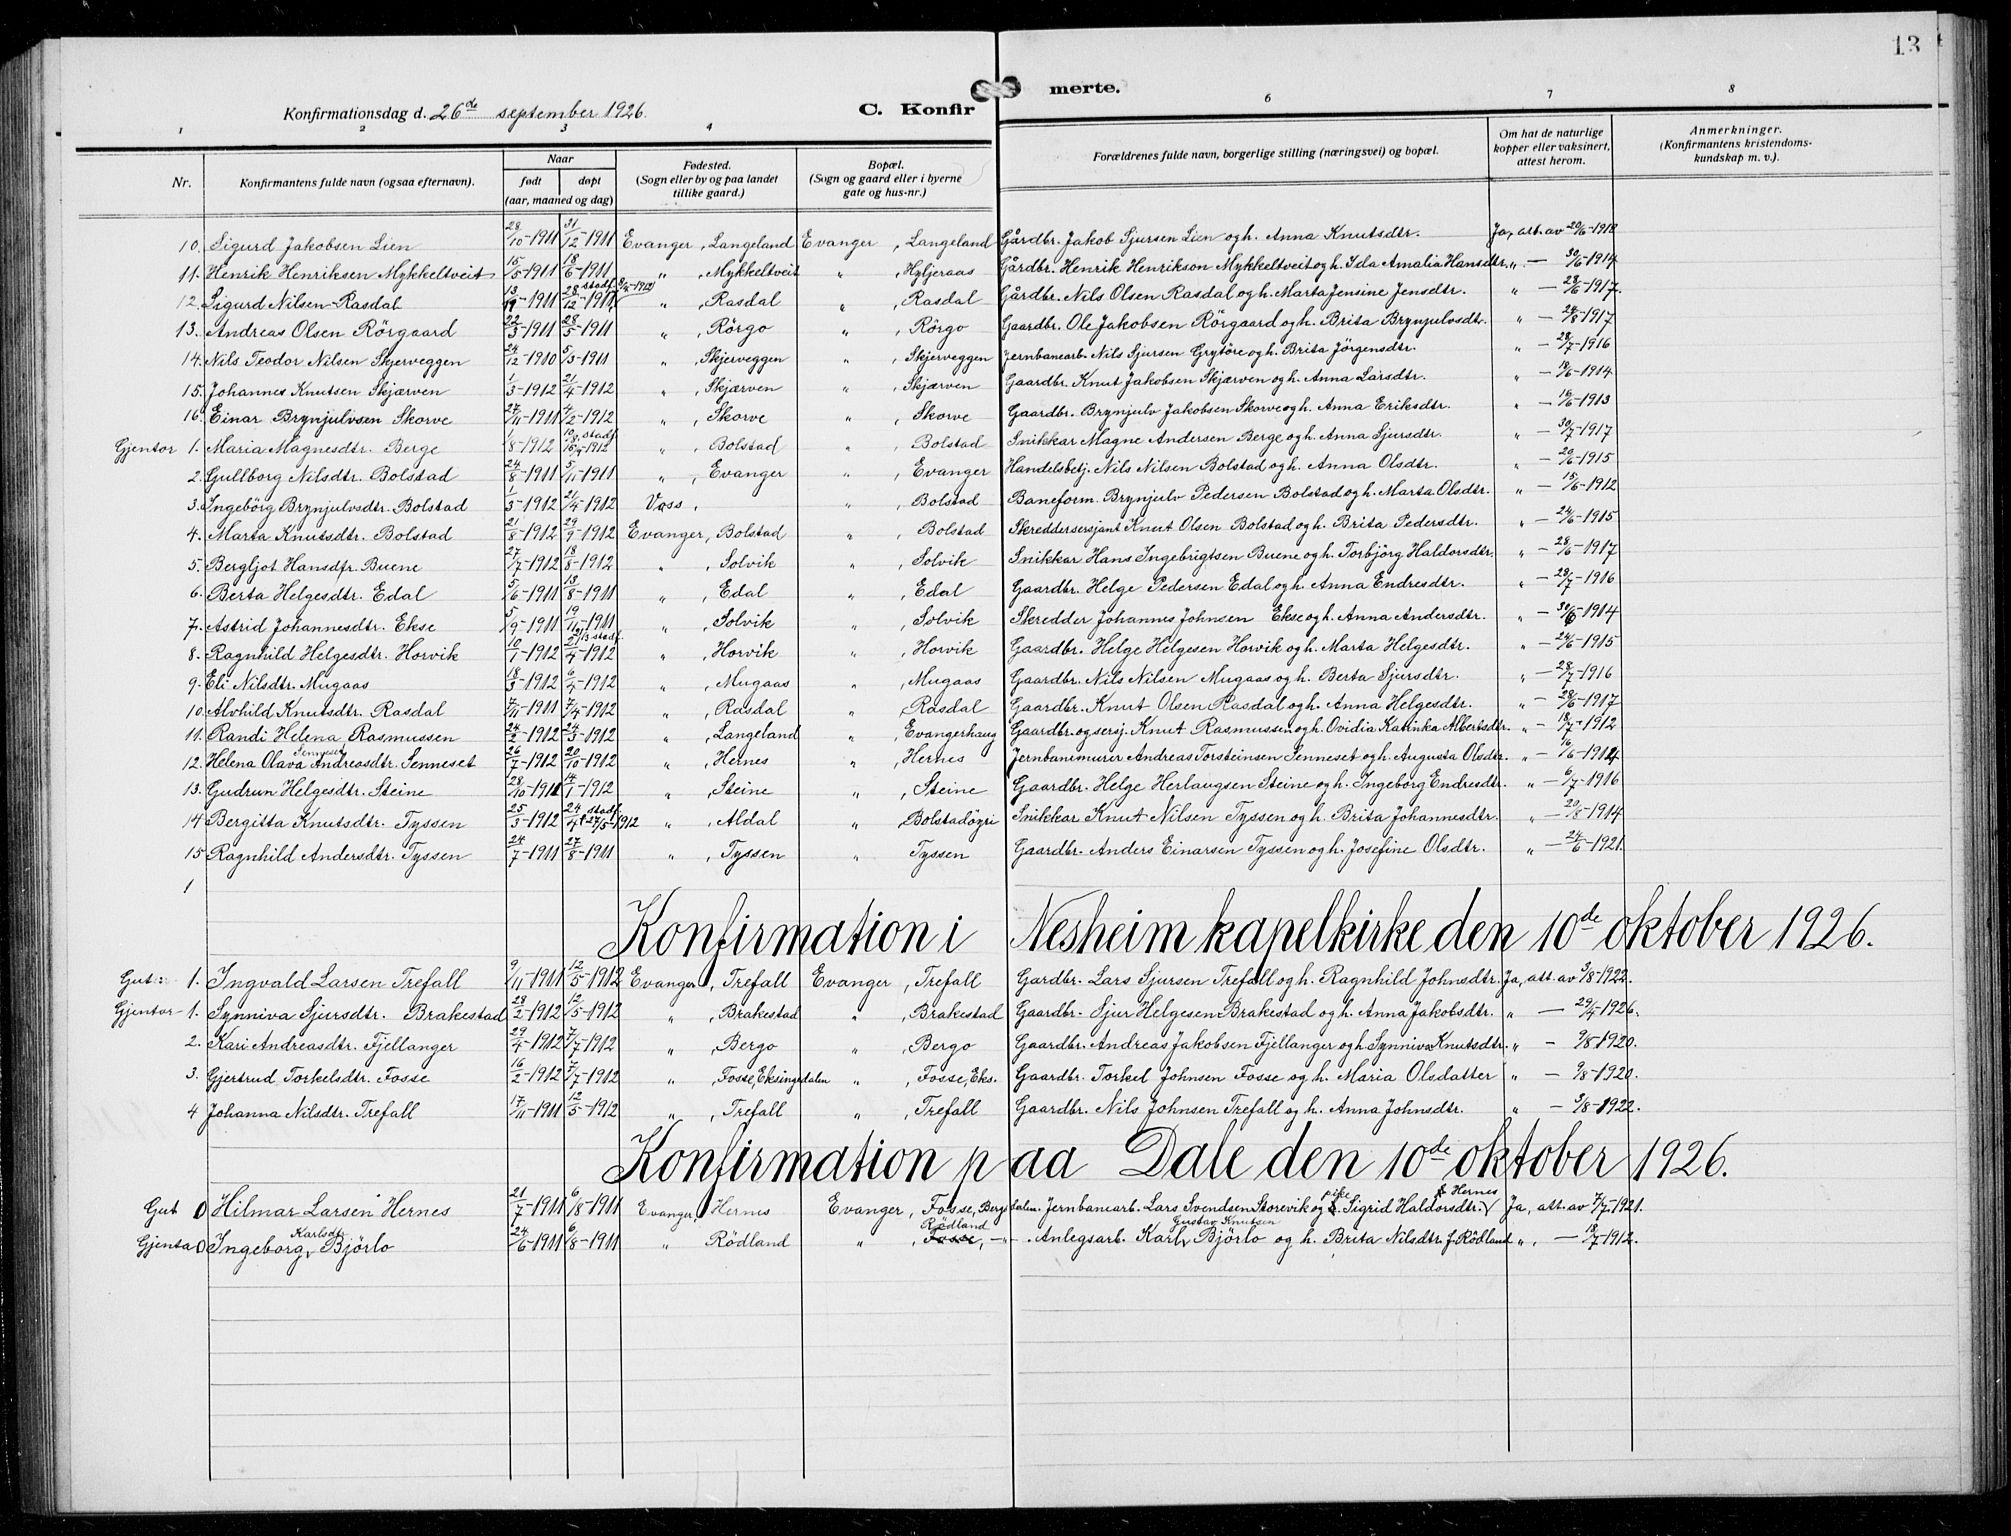 13
Konfirmationsdag d. 26de september 1926.
C. Konfirmerte.
1 2 3 4 6 7 8
Nr. Konfirmantens fulde navn (ogsaa efternavn). Naar født døpt (aar, maaned og dag) Fødested. (Sogn eller by og paa landet tillike gaard.) Bopæl. (Sogn og gaard eller i byerne gate og hus-nr.) Forældrenes fulde navn, borgerlige stilling (næringsvei) og bopæl. Om hat de naturlige kopper eller vaksinert, attest herom. Anmerkninger. (Konfirmantens kristendomskundskap m. v.).
10. Sigurd Jakobsen Lien 28/10-1911 31/12-1911 Evanger, Langeland Evanger, Langeland Gårdbr. Jakob Sjursen Lien og h. Anna Knutsdtr. Ja, att. av 20/6-1918
11. Henrik Henriksen Mykkeltveit 15/5-1911 18/6-1911 " , Mykkeltveit " , Hyljeraas Gårdbr. Henrik Henrikson Mykkeltveit og h. Ida Amalia Hansdtr. " - 30/6-1914
12. Sigurd Nilsen Rasdal 28/12-1911 stadf. " , Rasdal " , Rasdal Gårdbr. Nils Olsen Rasdal og h. Marta Jensine Jensdtr. " - 28/6-1917.
13. Andreas Olsen Rörgaard 22/3-1911 28/5-1911 " , Rörgo " , Rörgo Gaardbr. Ole Jakobsen Rörgaard og h. Brita Brynjulvsdtr. " - 24/8-1917
14. Nils Teodor Nilsen Skjerveggen 24/12-1910 5/3-1911 " , Skjerveggen " , Skjerveggen Jernbanearb. Nils Sjursen Grytöre og h. Brita Jörgensdtr. " - 28/7-1916
15. Johannes Knutsen Skjærven 1/3-1912 21/4-1912 " , Skjærven " , Skjærven Gaardbr. Knut Jakobsen Skjærven og h. Anna Larsdtr. " - 19/6-1914
16. Einar Brynjulvsen Skorve 27/11-1911 4/2-1912 " , Skorve " , Skorve Gaardbr. Brynjulv Jakobsen Skorve og h. Anna Eriksdtr. " - 16/6-1913
Gjentor 1. Maria Magnesdtr. Berge 1/8-1912 stadf. " , Bolstad " , Bolstad Snikkar Magne Andersen Berge og h. Anna Sjursdtr. " - 30/7-1917
2. Gullborg Nilsdtr. Bolstad 24/8-1911 5/11-1911 " , Evanger " , Evanger Handelsbetj. Nils Nilsen Bolstad og h. Anna Olsdtr. " - 20/6-1915
3. Ingebörg Brynjulvsdtr. Bolstad 1/3-1912 21/4-1912 Voss, " , Bolstad Baneform. Brynjulv Pedersen Bolstad og h. Marta Olsdtr. " - 15/6-1912
4. Marta Knutsdtr. Bolstad 21/8-1912 29/9-1912 Evanger, Bolstad " , Bolstad Skreddersersjant Knut Olsen Bolstad og h. Brita Pedersdtr. " - 24/6-1915
5. Bergljot Hansdtr. Buene 27/7-1912 18/8-1912 " , Solvik " , Solvik Snikkar Hans Ingebrigtsen Buene og h. Torbjörg Haldorsdtr. " - 28/6-1917
6. Berta Helgesdtr. Edal 5/6-1911 13/8-1911 " , Edal " , Edal Gaardbr. Helge Pedersen Edal og h. Anna Endresdtr. " - 28/7-1916
7. Astrid Johannesdtr. Ekse 5/9-1911 19/11-1911 " , Solvik " , Solvik Skredder Johannes Johnsen Ekse og h. Anna Andersdtr. " - 30/6-1914
8. Ragnhild Helgesdtr. Horvik 10/1-1912 21/4-1912 stadf. " , Horvik " , Horvik Gaardbr. Helge Helgesen Horvik og h. Marta Helgesdtr. " - 24/6-1915
9. Eli Nilsdtr. Mugaas 18/3-1912 6/4-1912 " , Mugaas " , Mugaas Gaardbr. Nils Nilsen Mugaas og h. Berta Sjursdtr. " - 28/7-1916
10. Alvhild Knutsdtr. Rasdal 7/11-1911 7/4-1912 " , Rasdal " , Rasdal Gaardbr. Knut Olsen Rasdal og h. Anna Helgesdtr. " - 28/6-1917
11. Randi Helena Rasmussen 24/2-1912 24/3-1912 " , Langeland " , Evangerhaug Gaardbr. og sersj. Knut Rasmussen og h. Ovidia Katinka Albertsdtr. " - 18/7-1912
12. Helena Olava Andreasdtr. Senneset 26/7-1912 20/10-1912 " , Hernes " , Hernes Jernbanemurer Andreas Torsteinsen Senneset og h. Augusta Olsdtr. " - 16/6-1914
13. Gudrun Helgesdtr. Steine 28/10-1911 14/1-1912 " , Steine " , Steine Gaardbr. Helge Herlaugsen Steine og h. Ingeborg Endresdtr. " - 6/7-1916
14 Bergitta Knutsdtr. Tyssen 25/3-1912 24/4 stadf. 27/5-1912 " , Aldal " , Bolstadöyri Snikkar Knut Nilsen Tyssen og h. Brita Johannesdtr. " - 20/8-1914
15 Ragnhild Andersdtr. Tyssen 24/7-1911 27/8-1911 " , Tyssen " Tyssen Gaardbr. Anders Einarsen Tyssen og h. Josefine Olsdtr. " - 24/6-1921.
1
Konfirmation i Nesheim kapelkirke den 10de oktober 1926.
Gut 1. Ingvald Larsen Trefall 9/11-1911 12/5-1912 Evanger, Trefall Evanger, Trefall Gardbr. Lars Sjursen Trefall og h. Ragnhild Johnsdtr. Ja, att. av 3/8-1922.
Gjentor - 1. Synniva Sjursdtr. Brakestad 28/2-1912 12/5-1912 " , Brakestad " , Brakestad Gaardbr. Sjur Helgesen Brakestad og h. Anna Jakobsdtr. " - 29/4-1926.
2. Kari Andreasdtr. Fjellanger 29/4-1912 7/7-1912 " , Bergo " , Bergo Gaardbr. Andreas Jakobsen Fjellanger og h. Synniva Knutsdtr. " - 9/8-1920.
3. Gjertrud Torkelsdtr. Fosse 16/2-1912 7/7-1912 " , Fosse, Eksingedalen " , Fosse, Eks. Gaardbr. Torkel Johnsen Fosse og h. Maria Olsdatter " - 9/8-1920.
4 Johanna Nilsdtr. Trefall 17/11-1911 12/5-1912 " , Trefall " , Trefall Gaardbr. Nils Johnsen Trefall og h. Anna Johnsdtr. " - 3/8-1922.
Konfirmation paa Dale den 10de oktober 1926.
Gut Hilmar Larsen Hernes 21/7-1911 6/8-1911 Evanger, Hernes Evanger, Fosse, Bergsdalen. Jernbanearb. Lars Svendsen Storevik og pike Sigrid Haldorsdtr. Hernes Ja, att. av 7/7-1921.
Gjenta Ingeborg Karlsdtr. Björlo 24/6-1911 6/8-1911 " Rödland " , Rödland Fosse, -"- Anlegsarb. Karl Gustav Knutsen Björlo og h. Brita Nilsdtr. f. Rödland ". - 18/7-1912.